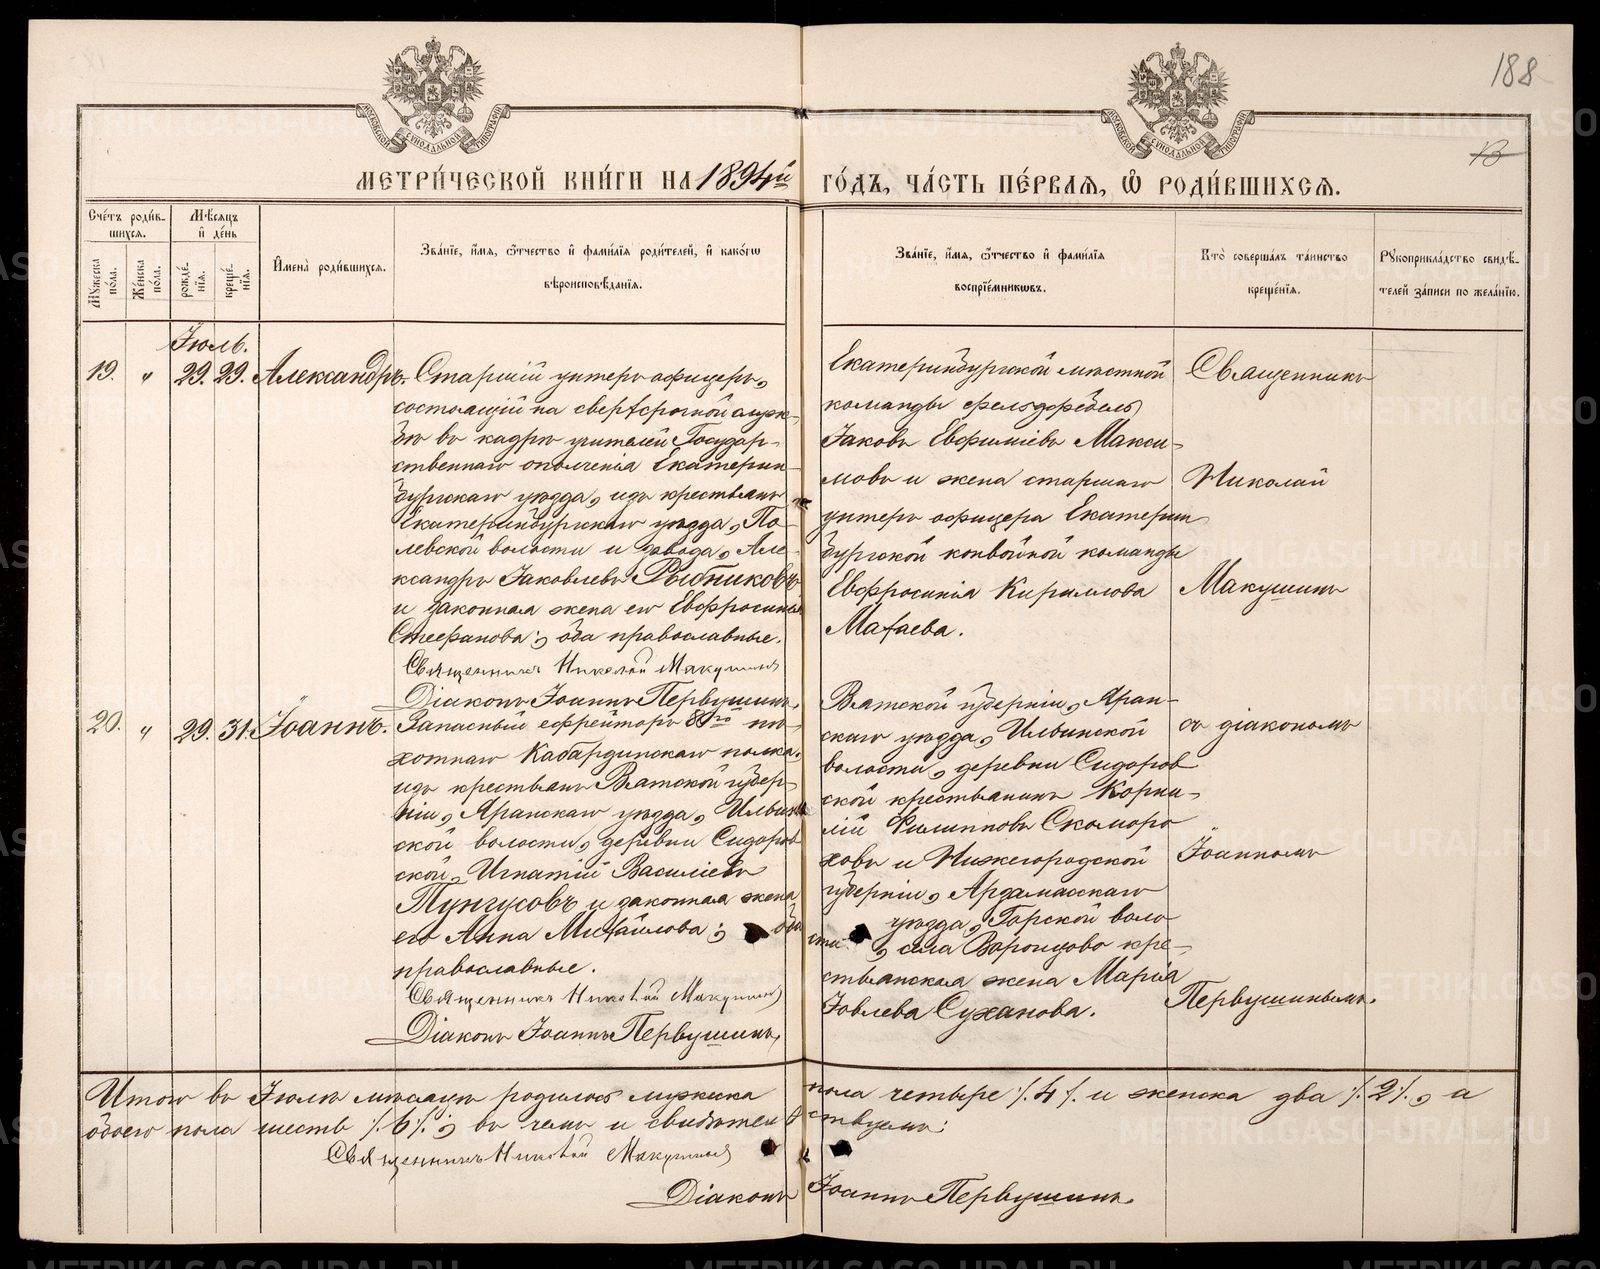 188
13
МЕТРИ́ЧЕСКОЙ КНИ́ГИ НА 1894й ГО́ДЪ, ЧА́СТЬ ПЕ́РВАЯ, Ѽ РОДИ́ВШИХСЯ.
МОСКОВСКОЙ СИНОДАЛЬНОЙ ТИПОГРАФІИ
МОСКОВСКОЙ СИНОДАЛЬНОЙ ТИПОГРАФІИ
Сче́тъ роди́вшихся.
Му́жеска по́ла.
Же́нска по́ла.
Мѣ́сяцъ и́ де́нь
рожде́нїя.
креще́нїя.
И҆мена̀ роди́вшихся.
Зва́нїе, и҆́мя, ѻ҆́тчество и҆ фами́лїя роди́телей, и҆ како́гѡ
вѣроисповѣ́данїя.
Зва́нїе, и҆́мя, ѻ҆́тчество и҆ фами́лїя
воспрїе́мникѡвъ.
Кто̀ соверша́лъ та́инство
креще́нїя.
Рꙋкоприкла́дство свидѣ́-
телей за́писи по жела́нїю.
Іюль.
19. „ 29. 29. Александръ.
Старшій унтеръ офицеръ,
состоящій на сверхсрочной служ-
бѣ въ кадрѣ учителей Государ-
ственнаго ополченія Екатерин-
бургскаго уѣзда, изъ крестьянъ
Екатеринбургскаго уѣзда, По-
левской волости и завода, Але-
ксандръ Іаковлевъ Рыбниковъ
и законная жена его Евфросинія
Стефанова; оба православные.
Священникъ Николай Макушинъ
Діаконъ Іоаннъ Первушинъ.
Екатеринбургской мѣстной
команды фельдфебель
Іаковъ Евфиміевъ Макси-
мовъ и жена старшаго
унтеръ офицера Екатерин
бургской конвойной команды
Евфросинія Кириллова
Махаева.
Священникъ
Николай
Макушинъ
20. „ 29. 31. Іоаннъ.
Запасный ефрейторъ 80го пѣ-
хотнаго Кабардинскаго полка,
изъ крестьянъ Вятской губер-
ніи, Яранскаго уѣзда, Ильин
ской волости, деревни Сидоров
ской, Игнатій Василіевъ
Тунгусовъ и законная жена
его Анна Михайлова; оба
православные.
Священникъ Николай Макушинъ
Діаконъ Іоаннъ Первушинъ.
Вятской губерніи, Яран-
скаго уѣзда, Ильинской
волости, деревни Сидоров
ской крестьянинъ Корни-
лій Филипповъ Скоморо
ховъ и Нижегородской
губерніи, Ардамаскаго
уѣзда, Горской воло
сти, села Воронцово кре-
стьянская жена Марія
Іовлева Суханова.
съ діакономъ
Іоанномъ
Первушинымъ.
Итого въ Іюлѣ мѣсяцѣ родилось мужеска пола четыре /.4/. и женска два /.2/., а
обоего пола шесть /.6/.; въ чемъ и свидѣтельствуемъ:
Священникъ Николай Макушинъ
Діаконъ Іоаннъ Первушинъ.
METRIKI.GASO-URAL.RU